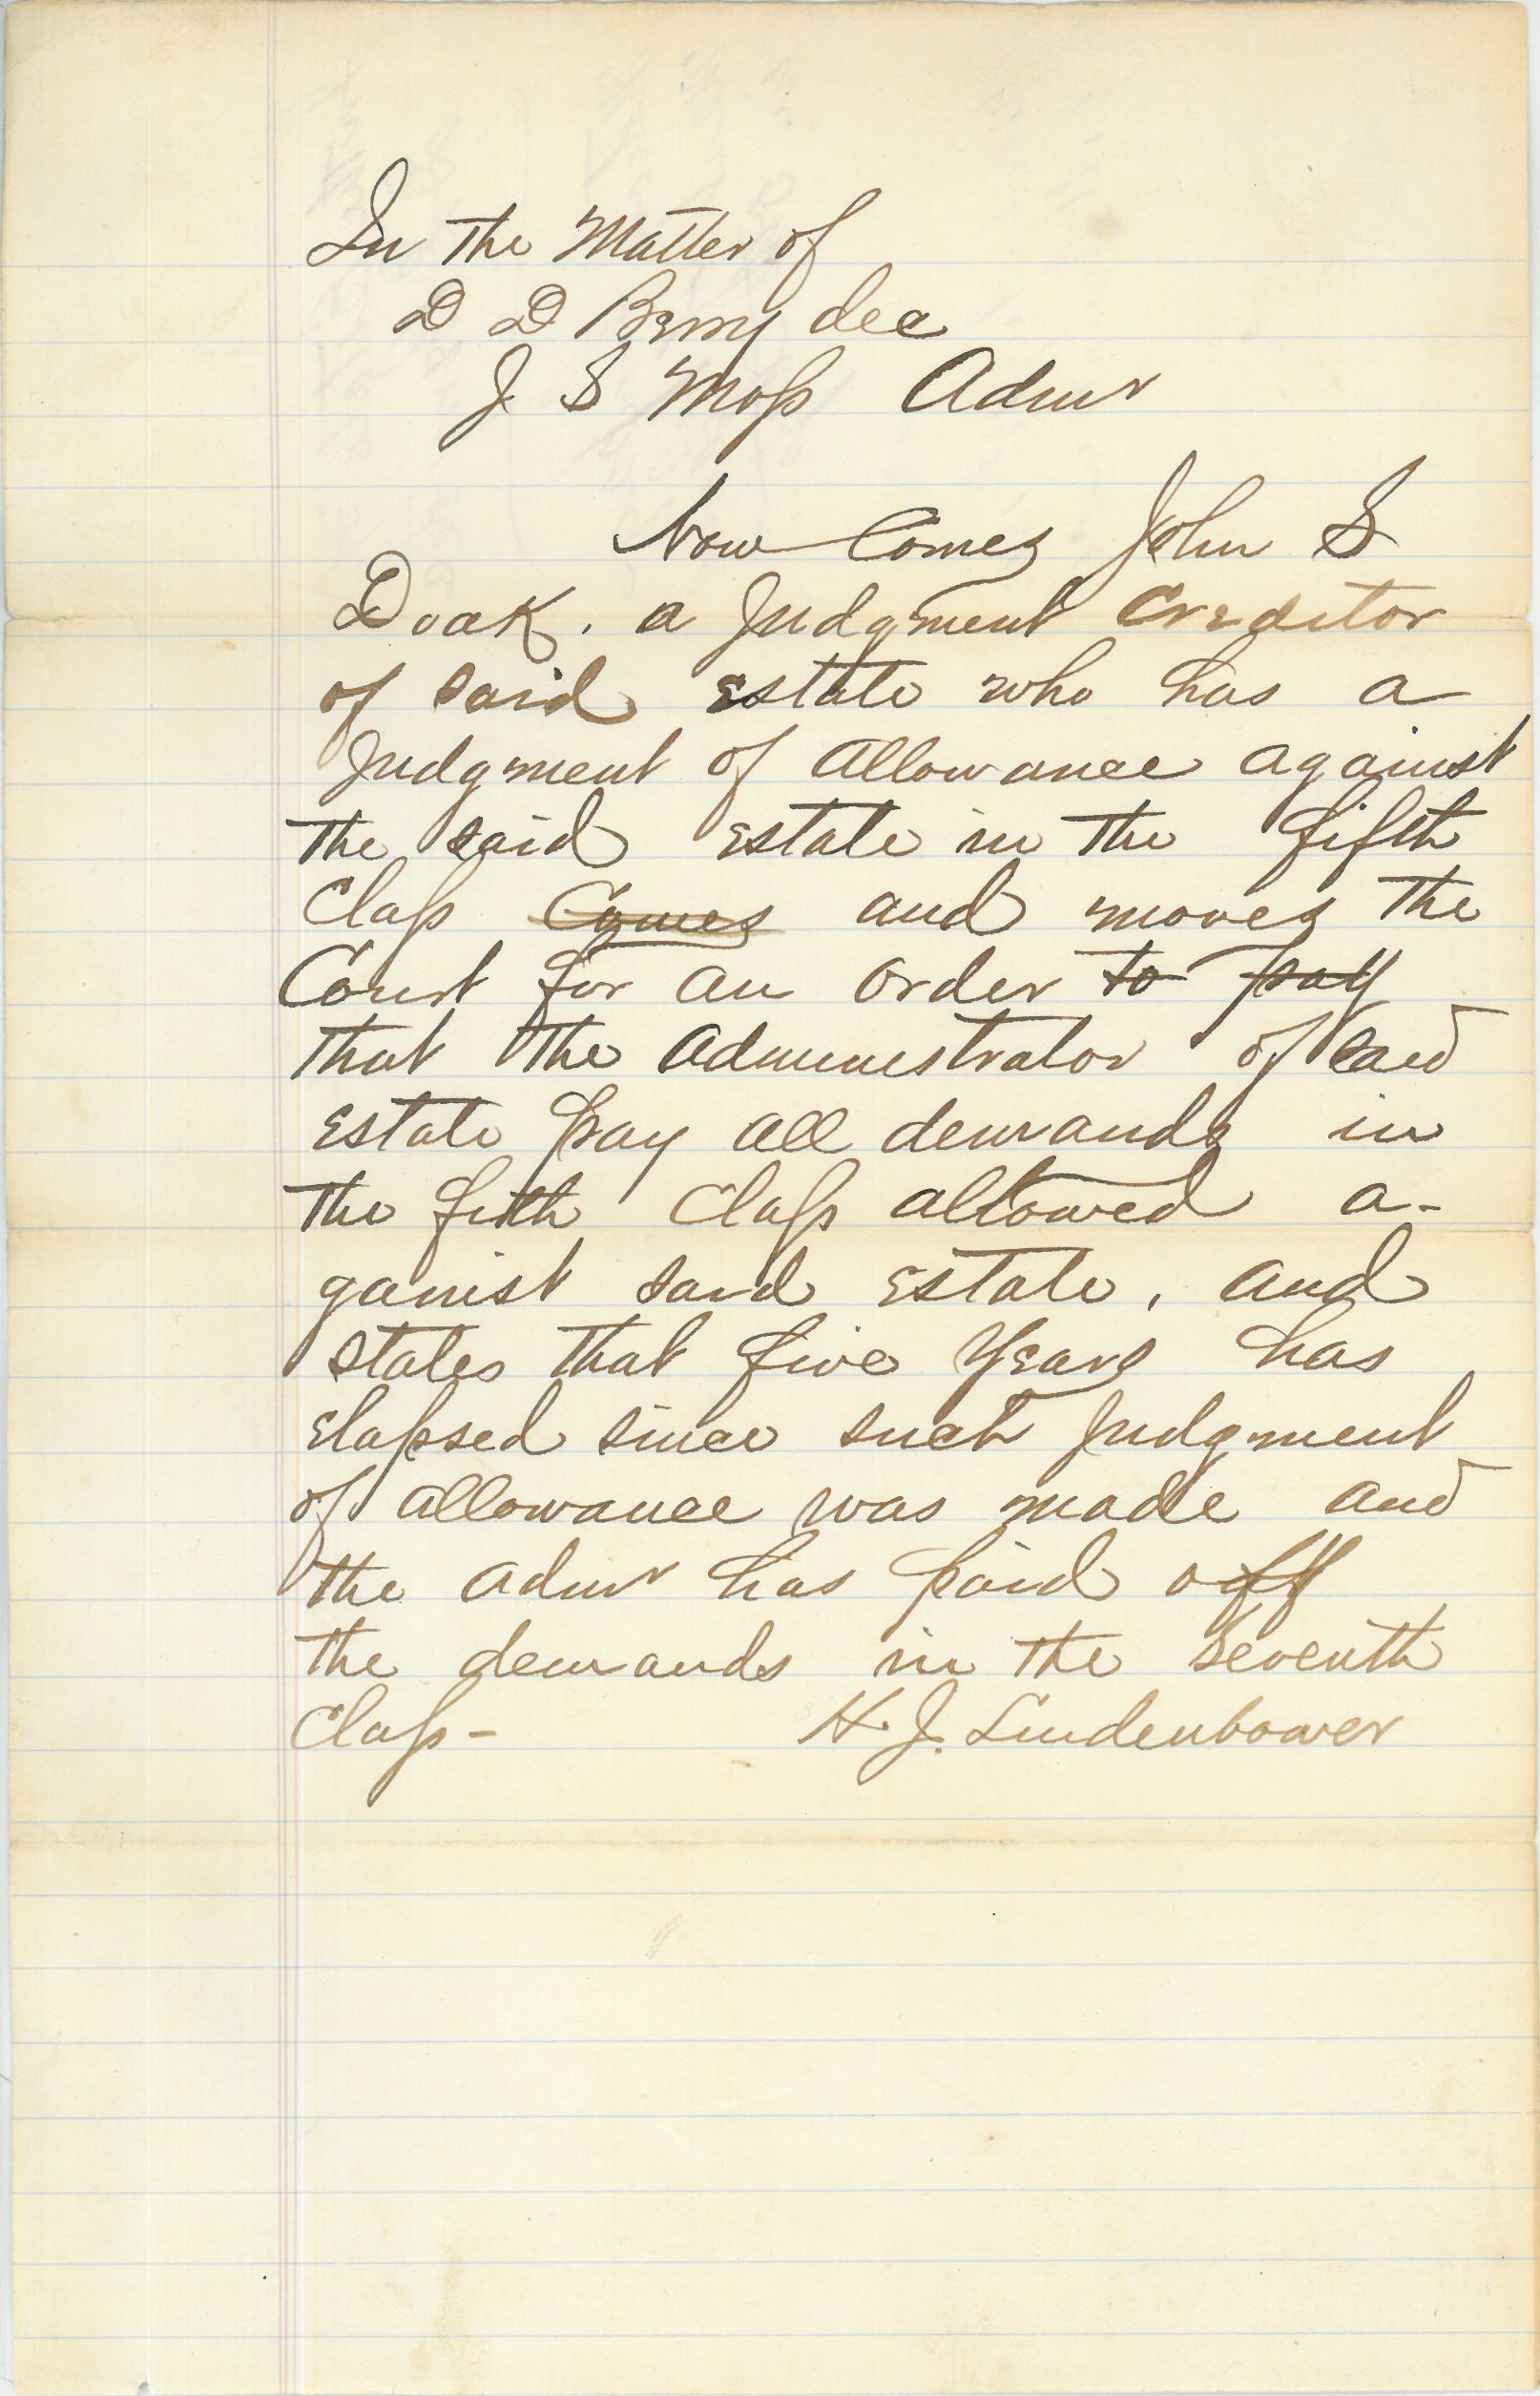 In The Matter of
D D Berry dec
J S Moss Admr
Now Comes John S
Doak. a Judgment Creditor
of said Estate who has a
Judgment of allowance against
The said Estate in The fifth
Class Comes and moves The
Court for an order to pay
That The administrator of said
Estate pay all demands in
The fifth Class allowed a-
gainst said Estate, and
states that five Years has
Elapsed since such Judgment
of allowance was made and
The admr has paid off
The demands in The Seventh
Class - H. J. Lindenbower